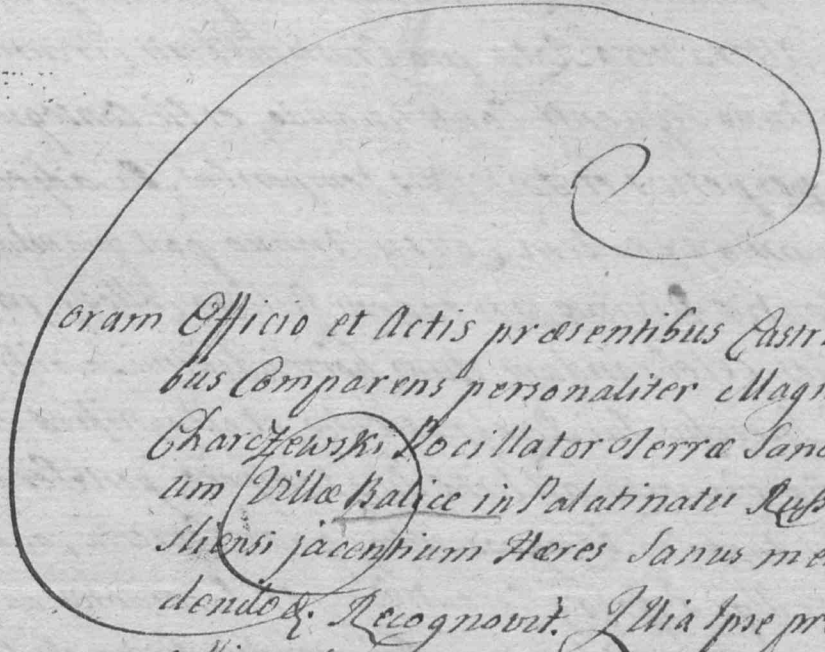 Coram Officio et Actis præsentibus Castr
bus Comparens personaliter Magn
Charczewski Pocillator Terræ San
um Villæ Balice in Palatinatu Russ
sliensi jacentium Hæres Sanus me
dendo &. Recognovit.
Ipse pr